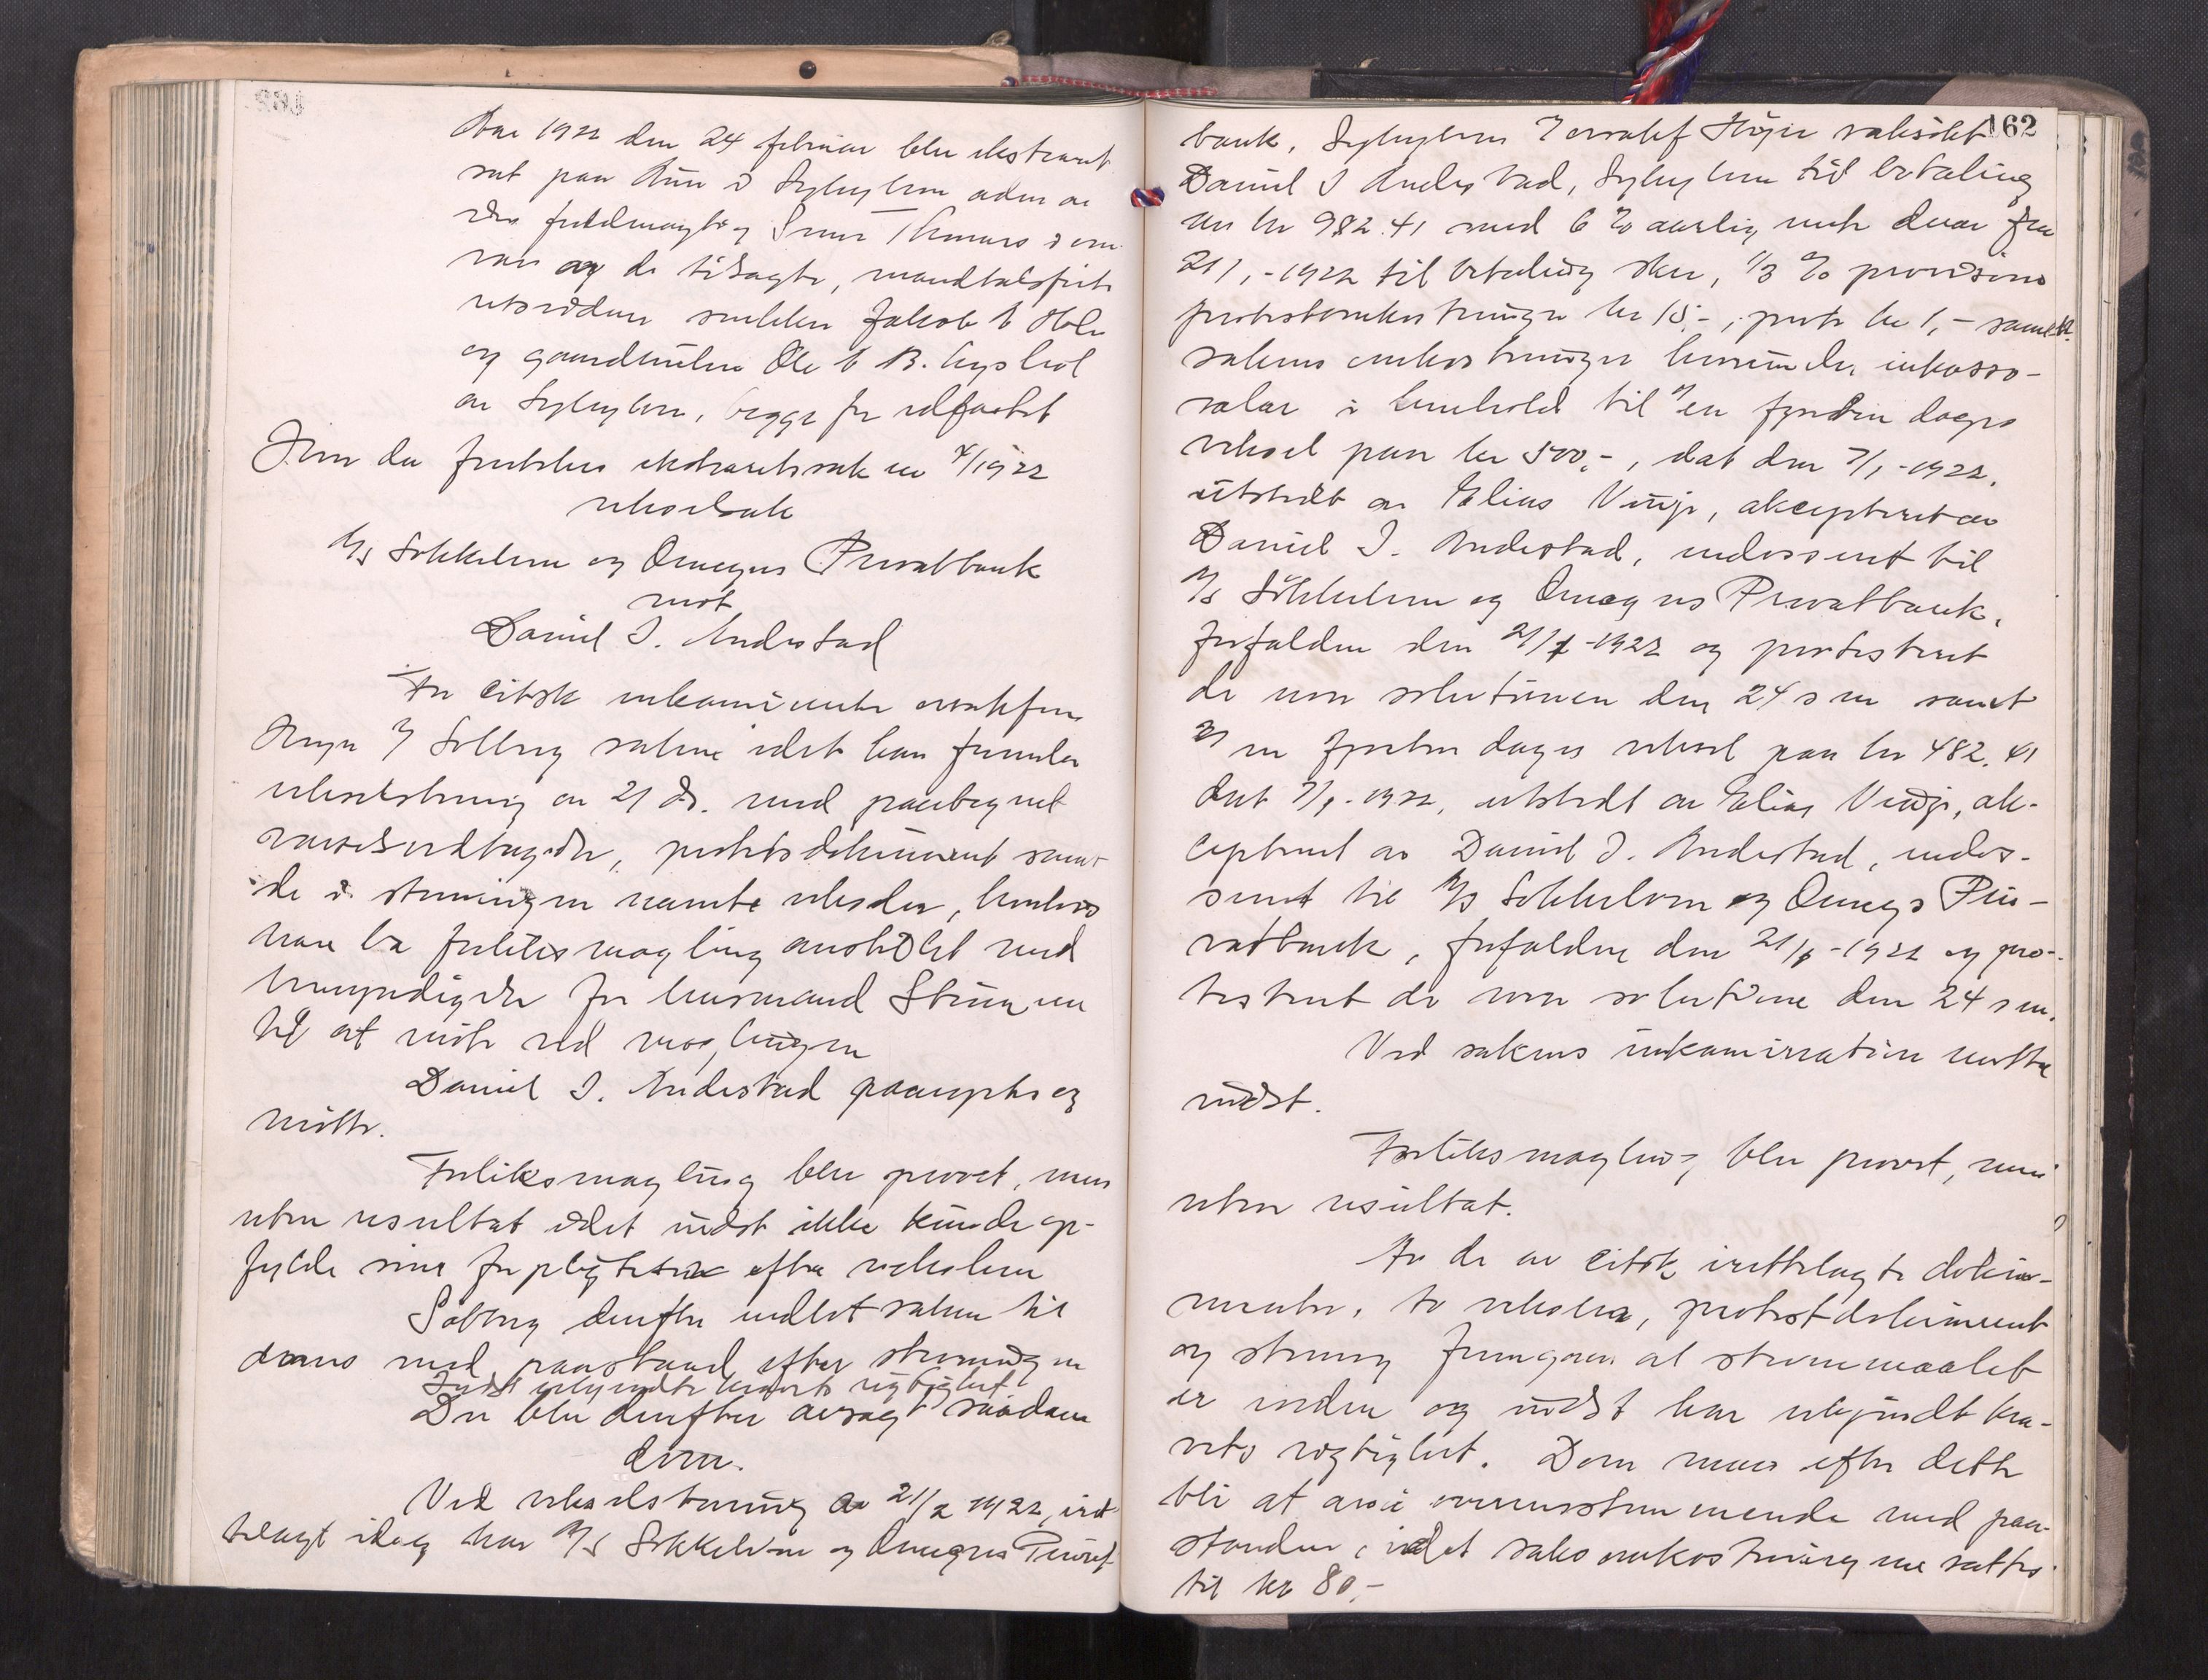 Aar 1922 den 24 februar blev ekstraret
sat paa Aure i Sykkylven av
den fuldmægtig som
var og de tilsagte, mandtalsførte
retsvidner snekker Jakob Hole
og gaardbruker Ole B.
av Sykkylven, begge før edfæstet
Hvor da foretokes ekstraretssak nr 4/1922
vekselsak
A/S Søkkelven og Omegns Privatbank
mot
Daniel I. Andestad
For citsk inkaminerte ovrakfører
Høyer v/ Solberg saken idet han fremla
vekselstevning av 21 ds. med paategnet
varselsvedtagelse, protestdokument samt
de i stevningen nævnte veksler, hvorhos
han ba forliksmægling anstillet med
bemyndigelse for hovmand
til at møte ved mæglingen
Daniel I. Andestad paaroptes og
møtte.
Forliksmægling blev prøvet, men
uten resultat idet indst ikke kunde op-
fylde sine forpligtelser efter vekslene
Solberg derefter indlot saken til
doms med paastand efter stevningen
Indst erkjendte kravets rigtighet
Der blev derefter avsagt saadan
dom.
Ved vekselstevning av 21/2 1922, iret-
telagt idag har A/S Søkkelven og Omegns Privat-
162
bank, Sykkylven v/ ovrakf Høyer saksøkt
Daniel I Andestad, Sykkylven til betaling
av kr 982.41 med 6 % aarlig rente derav fra
21/1-1922 til betaling sker, 1/3 % provision
protestomkostninger kr 15,-, porto kr 1,- samt
sakens omkostninger herunder inkasso-
salær i henhold til 1) en fjorten dages
veksel paa kr 500,-, dat den 7/1-1922,
utstedt av Elias Vinje, akceptert av
Daniel I. Andestad, endossert til
A/S Søkkelven og Omegns Privatbank,
forfalden den 21/1-1922 og protestert
de non solutionen den 24 s m samt
2) en fjorten dages veksel paa kr 482.41
dat 7/1-1922, utstedt av Elias Vinje, ak-
ceptert av Daniel I. Andestad, endos-
sert til A/S Søkkelven og Omegs Pri-
vatbank, forfalden den 21/1-1922 og pro-
testert de non solutione den 24 s m.
Ved sakens inkamination møtte
indst.
Forliksmægling blev prøvet, men
uten resultat.
Av de av citsk irettelagte doku-
menter, to veksler, protestdokument
og stevning fremgaar at stevnemaalet
er i orden og indst har erkjendt kra-
vets rigtighet. Dom maa efter dette
bli at avsi overensstemmende med paa-
standen, idet saksomkostningene sættes
til kr 80,-